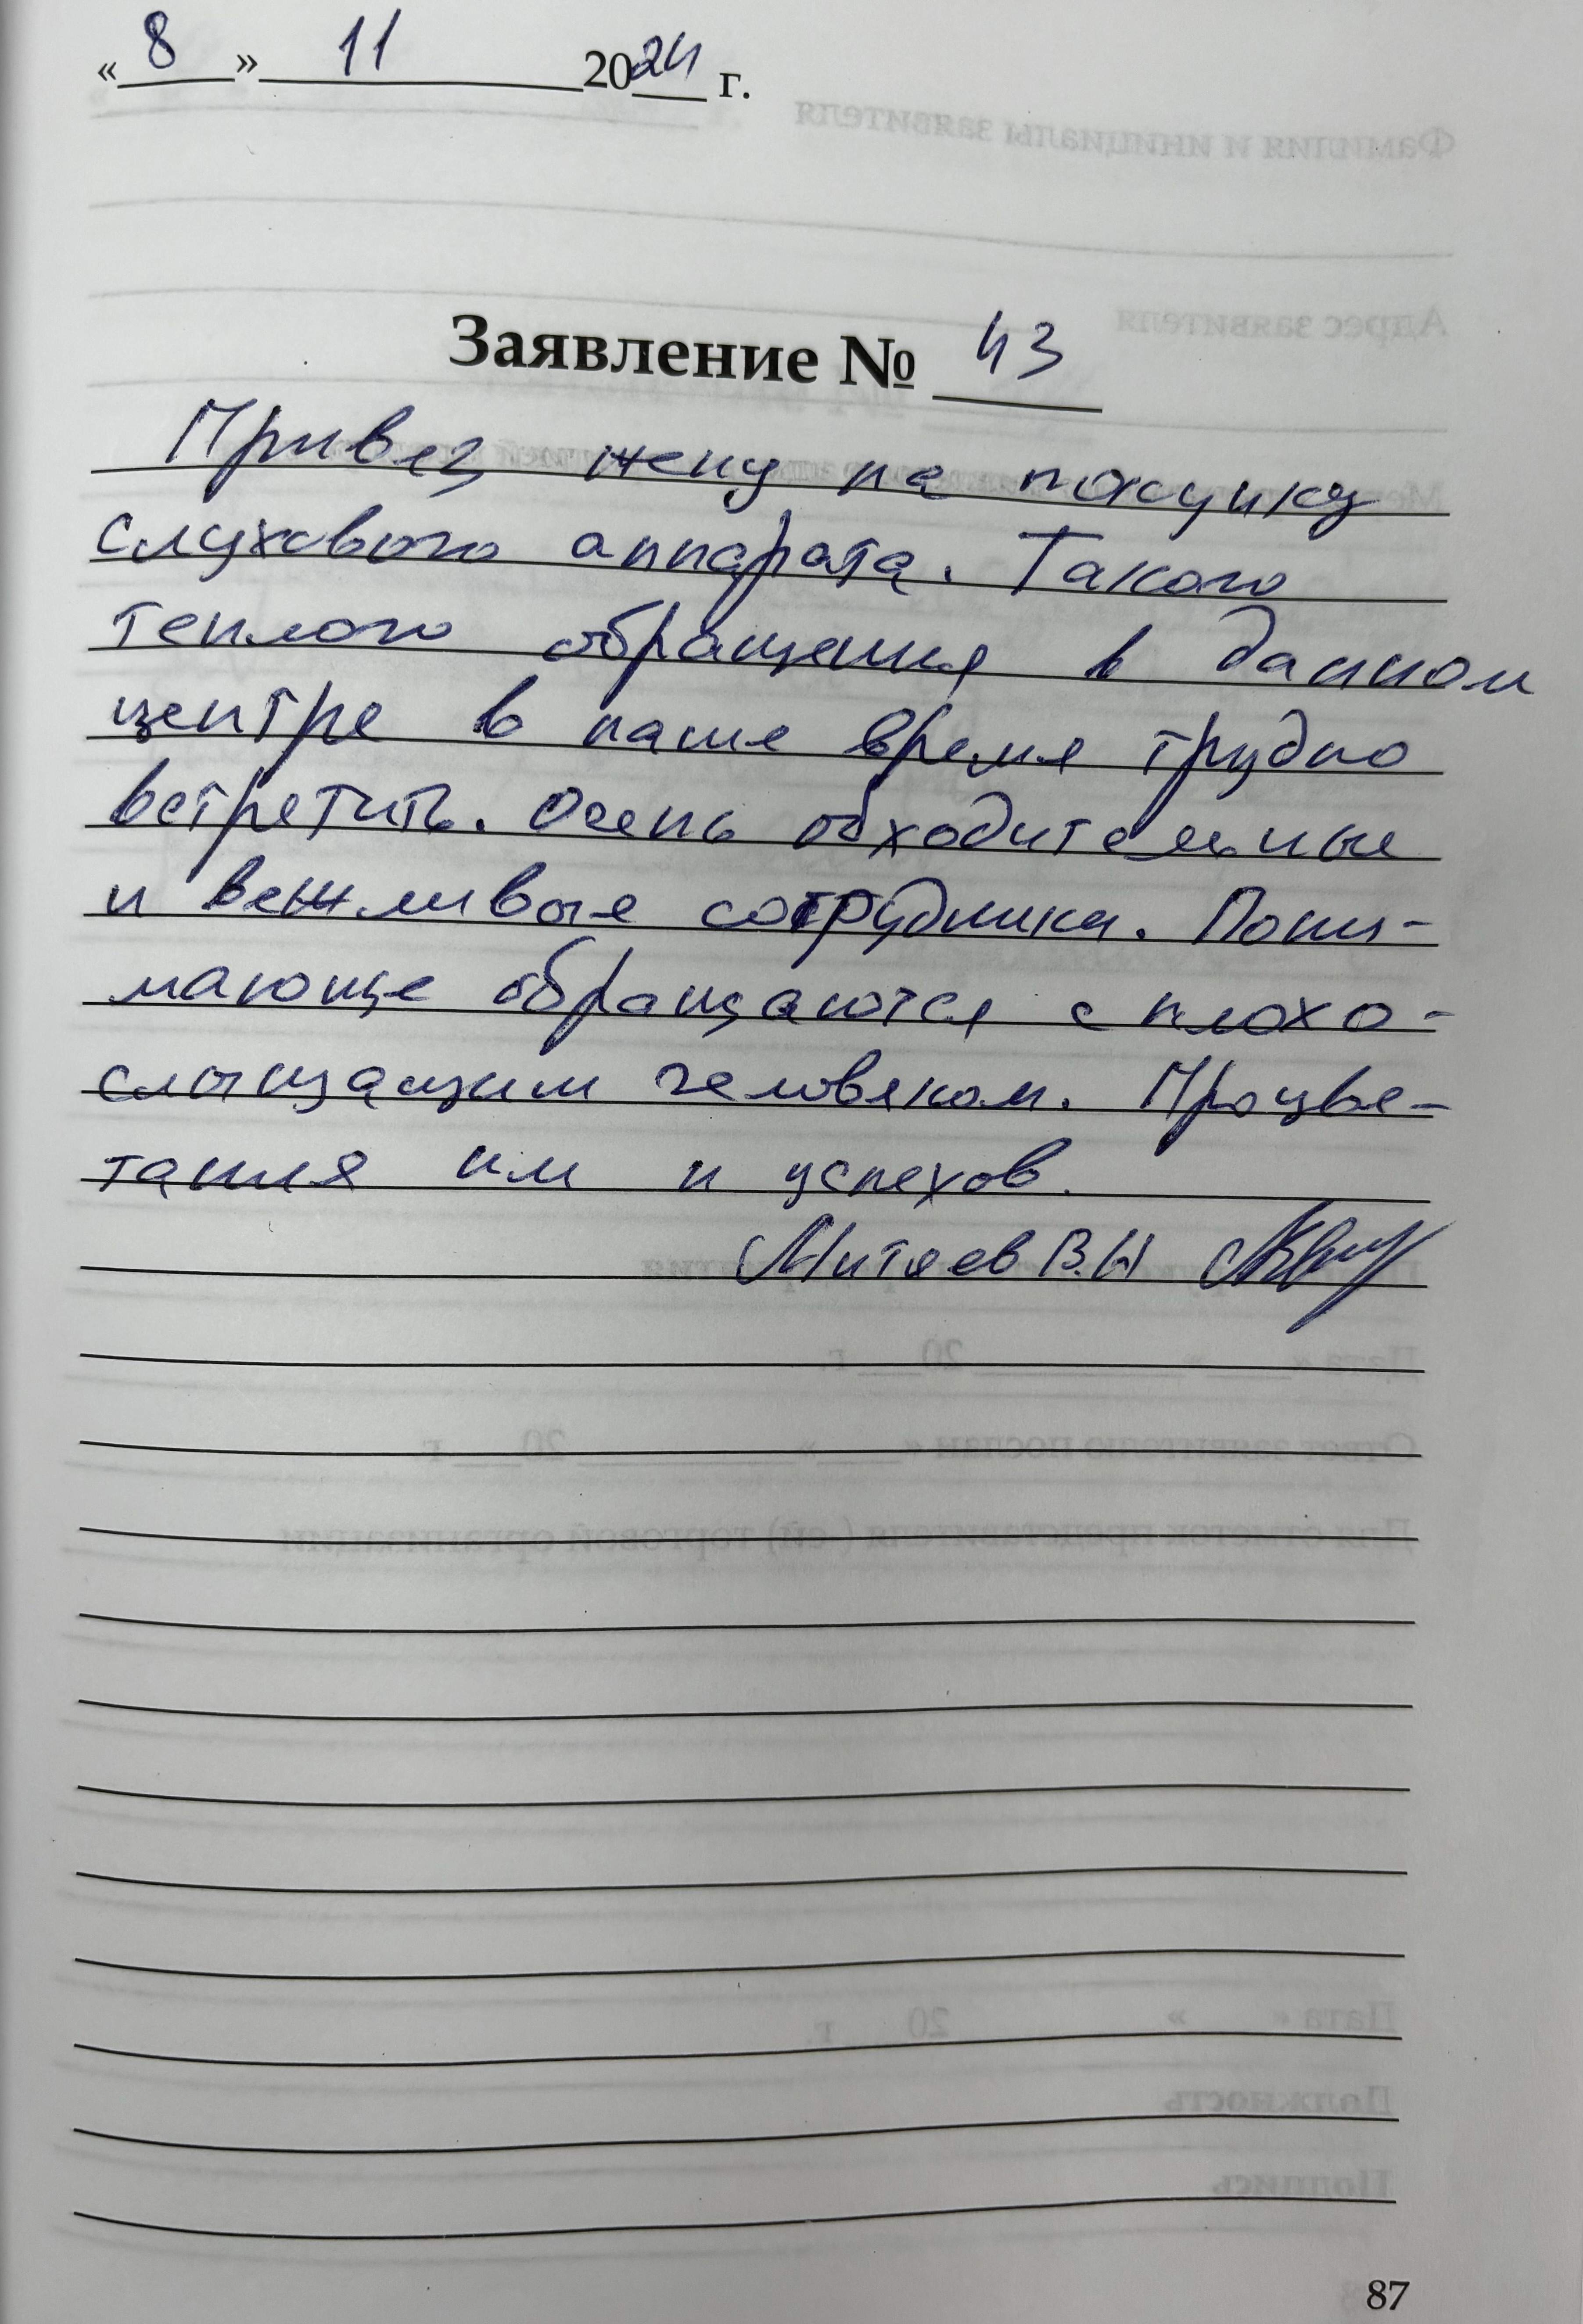 «8» 11 2024 г.
Заявление № 43
Привез жену на покупку
слухового аппарата. Такого
теплого обращения в данном
центре в наше время трудно
встретить. Очень обходительные
и вежливые сотрудники. Пони-
мающе обращаются с плохо-
слышащим человеком. Процве-
тания им и успехов.
Митяев В.Н
87